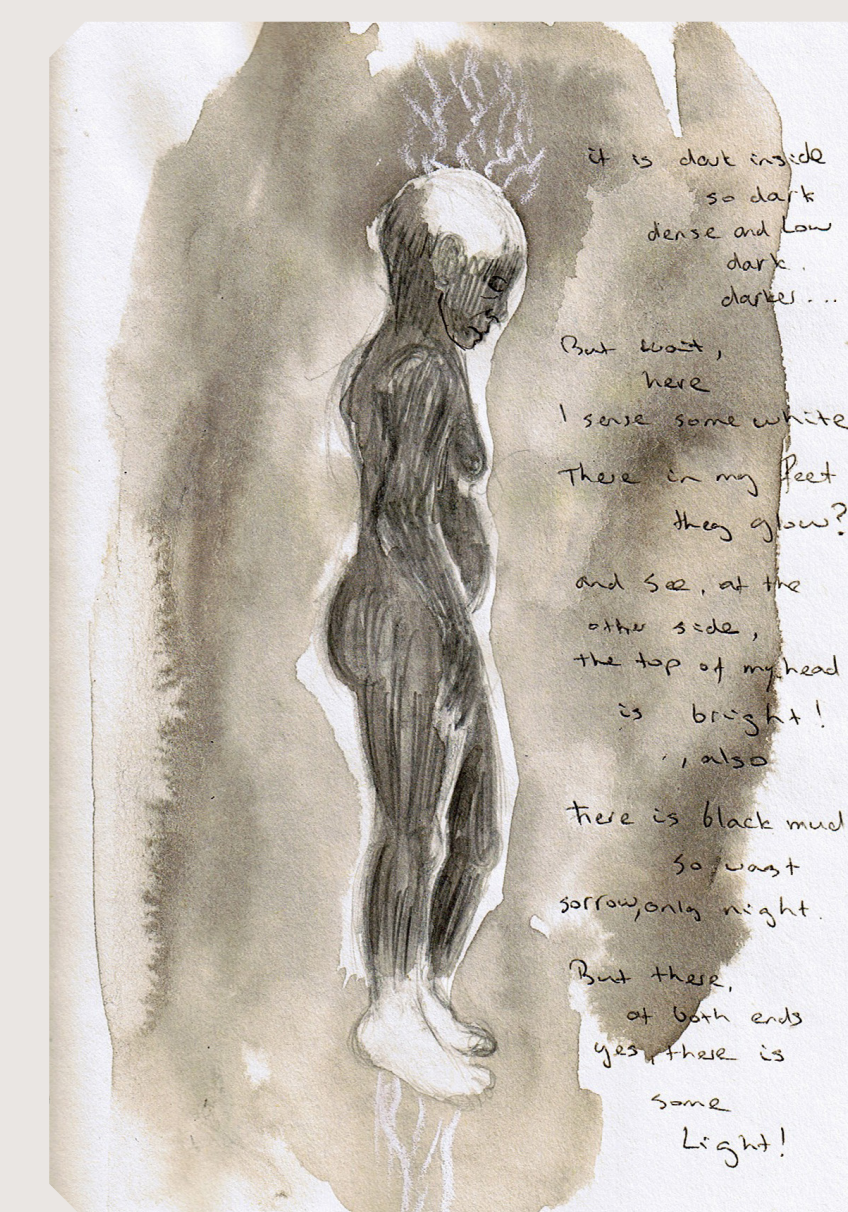 it is dark inside
so dark
dense and low
dark.
darker...
But wait,
here
I sense some white
There in my feet
they glow?
and see, at the
other side,
the top of my head
is bright!
, also
there is black mud
so wast
sorrow, only night.
But there,
at both ends
yes, there is
some
Light!